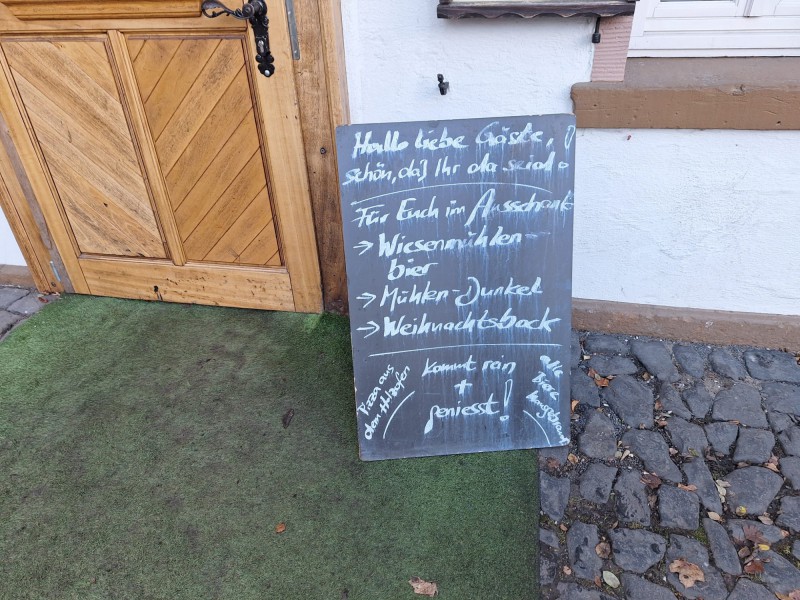 Hallo liebe Gäste,
schön, daß Ihr da seid!
Für Euch im Ausschank
→ Wiesenmühlen-
bier
→ Mühlen-Dunkel
→ Weihnachtsbock
Pizza aus
dem Holzofen
kommt rein
+
genießt!
alle
Biere
hausgebraut